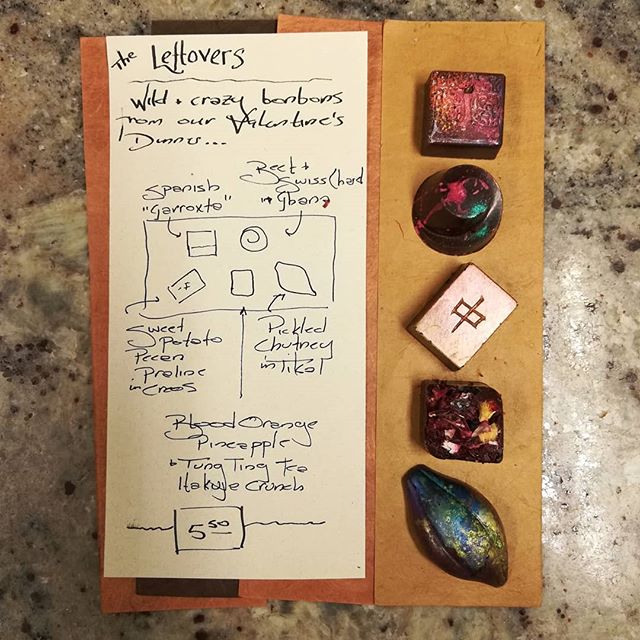 The Leftovers
Wild + crazy bonbons
from our Valentine's
Dinner...
Spanish
"Garroxta"
Beet +
Swiss Chard
in Ghana
Sweet
Potato
Pecan
Praline
in Craos
Pickled
Chutney
in Tikal
Blood Orange
Pineapple
+ Tung Ting Tea
Crunch
5 50